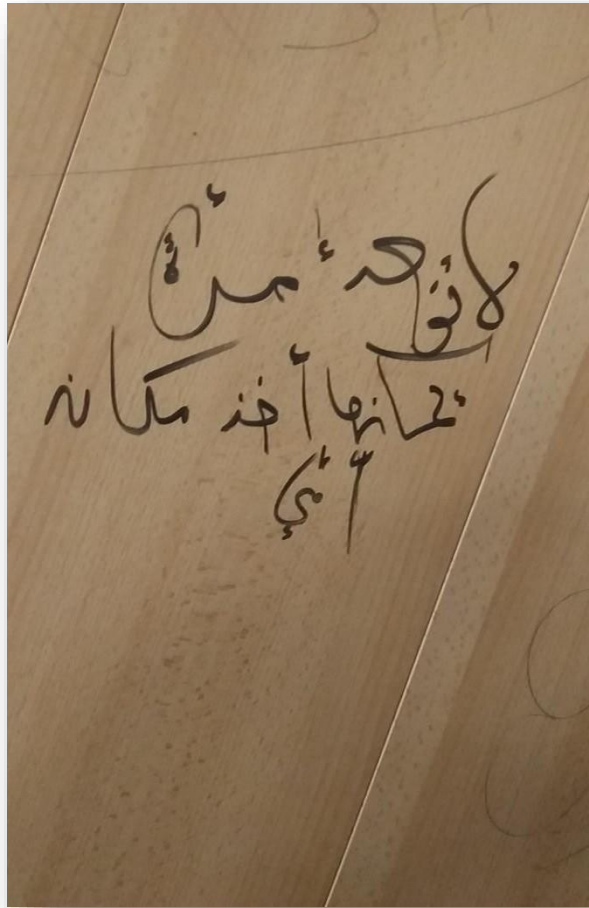 لا توجد أمرأة
بإمكانها أخذ مكانه
أمّي